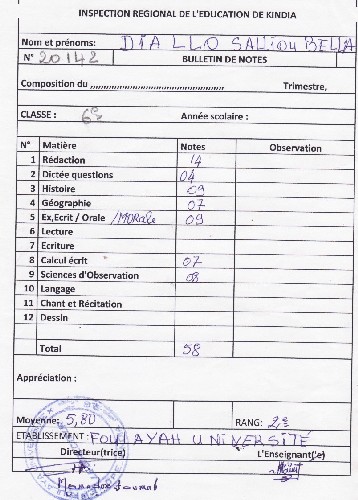 INSPECTION REGIONAL DE L'EDUCATION DE KINDIA
Nom et prénoms: DIALLO SALIOU BELLA
N° 20142 BULLETIN DE NOTES
Composition du ,,,,,,,,,,,,,,,,,,,,,,,,,,,,,,,,,,,, Trimestre,
CLASSE : 6e Année scolaire :
N° Matière Notes Observation
1 Rédaction 14
2 Dictée questions 04
3 Histoire 09
4 Géographie 07
5 Ex,Ecrit / Orale /MORale 09
6 Lecture
7 Ecriture
8 Calcul écrit 07
9 Sciences d'Observation 08
10 Langage
11 Chant et Récitation
12 Dessin
Total 58
Appréciation :
Moyenne: 5,80 RANG: 2e
ETABLISSEMENT: FOULAYAH UNIVERSITÉ
Directeur(trice) L'Enseignant('e)